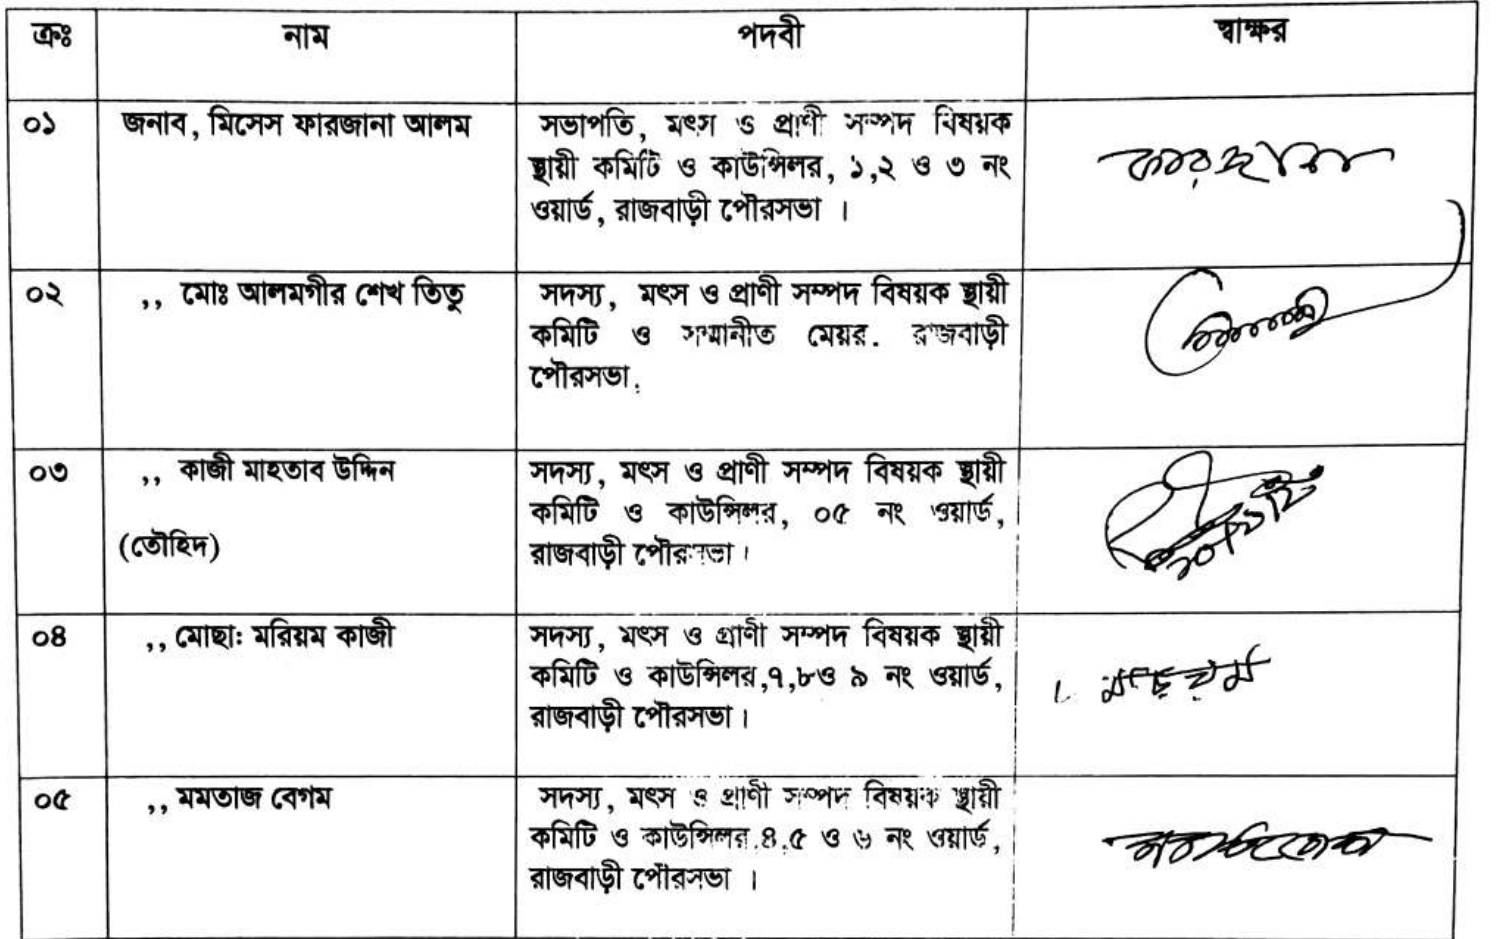 ক্রঃ নাম পদবী স্বাক্ষর
০১ জনাব, মিসেস ফারজানা আলম সভাপতি, মৎস ও প্রাণী সম্পদ বিষয়ক
স্থায়ী কমিটি ও কাউন্সিলর, ১,২ ও ৩ নং
ওয়ার্ড, রাজবাড়ী পৌরসভা ।
ফারজানা
০২ ,, মোঃ আলমগীর শেখ তিতু সদস্য, মৎস ও প্রাণী সম্পদ বিষয়ক স্থায়ী
কমিটি ও সম্মানীত মেয়র. রাজবাড়ী
পৌরসভা.
০৩ ,, কাজী মাহতাব উদ্দিন সদস্য, মৎস ও প্রাণী সম্পদ বিষয়ক স্থায়ী
কমিটি ও কাউন্সিলর, ০৫ নং ওয়ার্ড,
(তৌহিদ) রাজবাড়ী পৌরসভা।
০৪ ,, মোছা: মরিয়ম কাজী সদস্য, মৎস ও প্রাণী সম্পদ বিষয়ক স্থায়ী
কমিটি ও কাউন্সিলর,৭,৮ও ৯ নং ওয়ার্ড,
রাজবাড়ী পৌরসভা।
০৫ ,, মমতাজ বেগম সদস্য, মৎস ও প্রাণী সম্পদ বিষয়ক স্থায়ী
কমিটি ও কাউন্সিলর.৪.৫ ও ৬ নং ওয়ার্ড,
রাজবাড়ী পৌরসভা ।